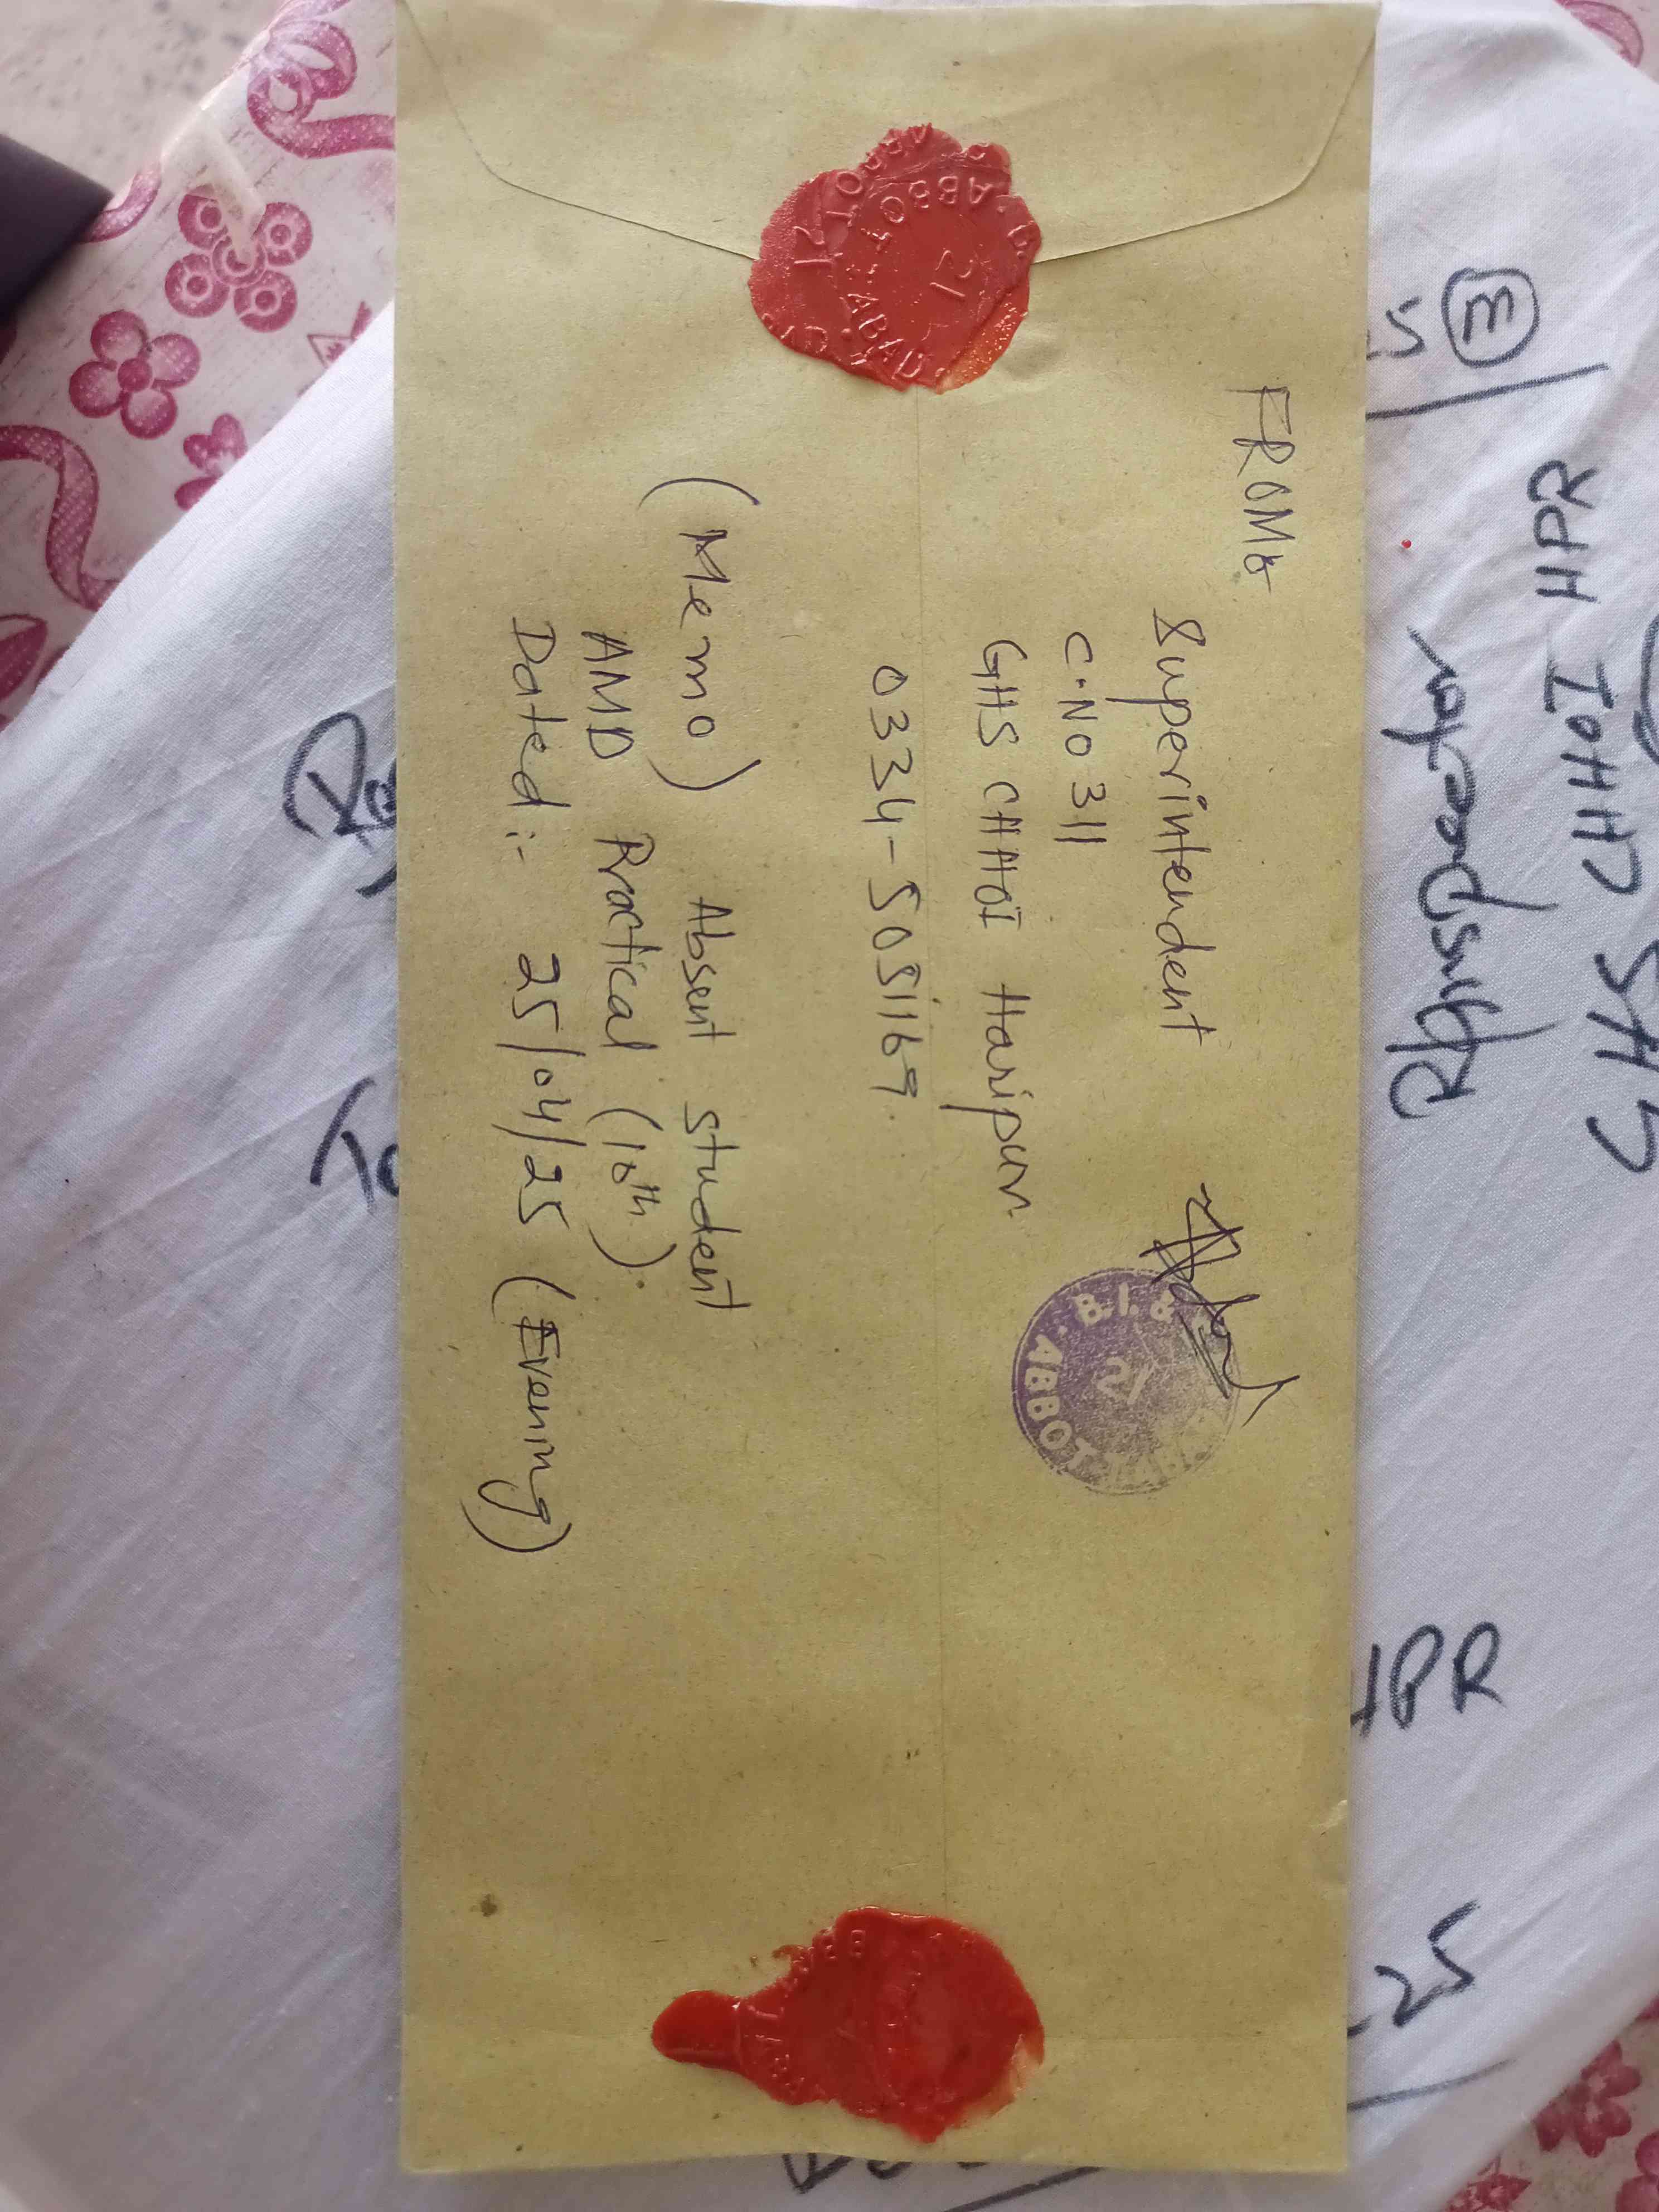 FROM:-
Superintendent
C.NO 311
GHS CHHOI Haripur.
0334-5051169.
(Memo) Absent student
AMD Practical (10th).
Dated:- 25/04/25 (Evening)
B.I. &
21
ABBOT
ABBOT
21
ABBOT.ABAD.
21
5 (m)
GHS CHHOI HPR
HPR
25